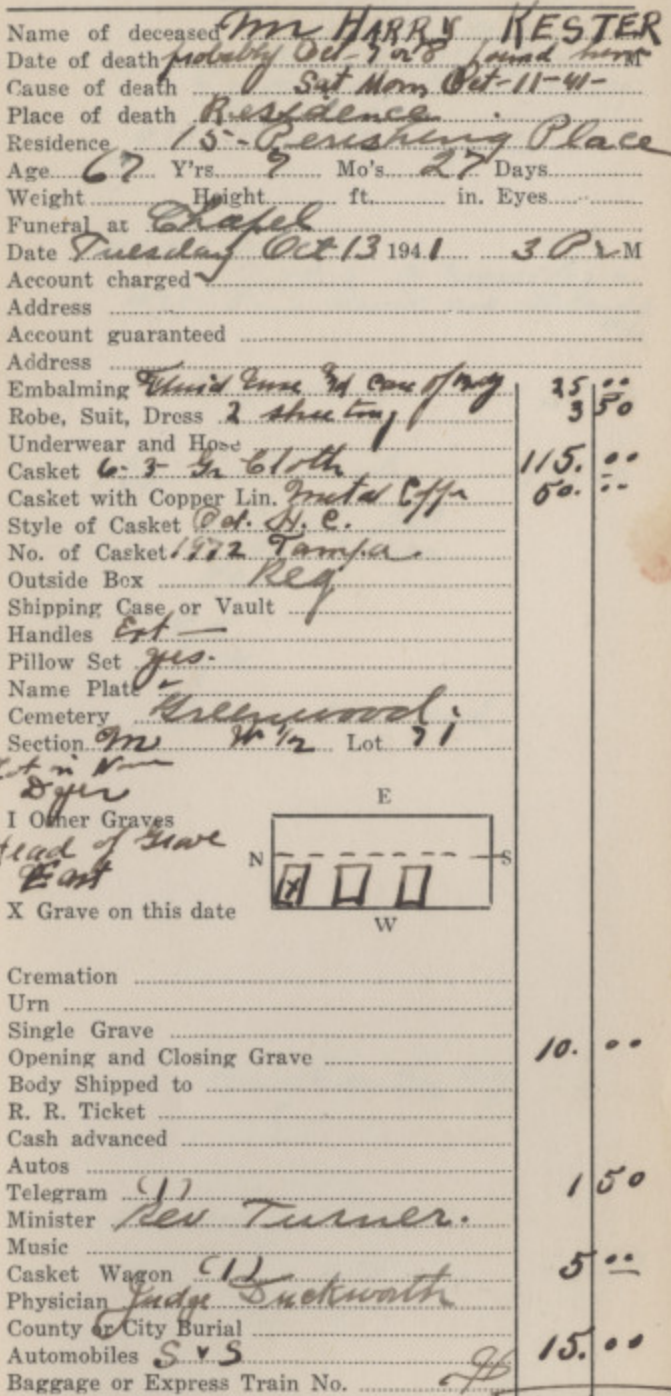 Name of deceased Mr HARRY KESTER
Date of death probably Oct-7 or 8 found him M
Cause of death Sat Morn Oct-11-41-
Place of death Residence.
Residence 15-Perishing Place
Age 67 Y'rs 9 Mo's 27 Days
Weight Height ft. in. Eyes
Funeral at Chapel
Date Tuesday Oct 13 1941 3 P M
Account charged
Address
Account guaranteed
Address
Embalming Fluid care of body 25 00
Robe, Suit, Dress 2 sheeting 3 50
Underwear and Hose
Casket 6-3 Gr Cloth 115. 00
Casket with Copper Lin. Metal 50. --
Style of Casket Oct. H. C.
No. of Casket 1972 Tampa.
Outside Box Reg
Shipping Case or Vault
Handles Ext —
Pillow Set yes.
Name Plate
Cemetery Greenwood
Section M W 1/2 Lot 71
Lot in Name
Dyer
I Other Graves
Head of Grave
East
E
N S
X
W
X Grave on this date
Cremation
Urn
Single Grave
Opening and Closing Grave 10. 00
Body Shipped to
R. R. Ticket
Cash advanced
Autos
Telegram (1) 1 50
Minister Rev Turner.
Music
Casket Wagon (1) 5 00
Physician Judge Duckworth
County or City Burial
Automobiles S v S 15. 00
Baggage or Express Train No.